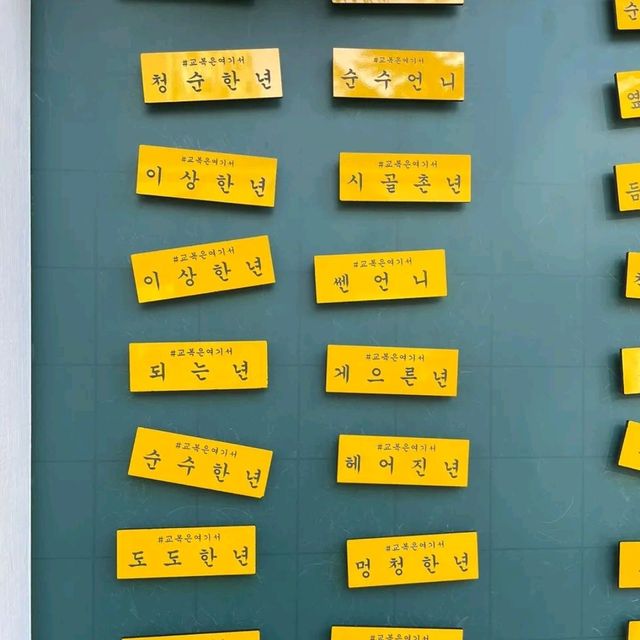 #교복은여기서
청순한년
#교복은여기서
순수언니
#교복은여기서
이상한년
#교복은여기서
시골촌년
#교복은여기서
이상한년
#교복은여기서
쎈언니
#교복은여기서
되는년
#교복은여기서
게으른년
#교복은여기서
순수한년
#교복은여기서
헤어진년
#교복은여기서
도도한년
#교복은여기서
멍청한년
#교복은여기서
#교복은여기서
순
옆
듬